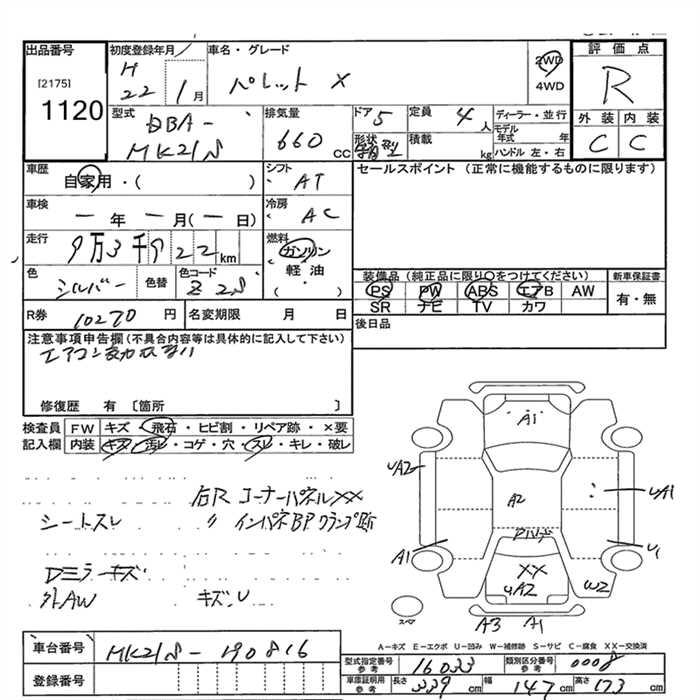 出品番号
[2175]
1120
初度登録年月
H 22 1月
車名・グレード
パレット X
2WD
4WD
評価点
R
外装 内装
C C
型式
DBA-
MK21S
排気量
660 CC
ドア 5
形状
定員 4人
積載 kg
ディーラー・並行
モデル年式 年
ハンドル 左・右
車歴
自家用・( )
シフト
AT
セールスポイント (正常に機能するものに限ります)
車検
一年 一月(一日)
冷房
AC
走行
9万3千922km
燃料
ガソリン
軽油
( ・ )
色
シルバー
色替
色コード
Z2S
装備品(純正品に限り○をつけてください)
新車保証書
PS PW ABS エアB AW
SR ナビ TV カワ
有・無
R券 10270円
名変期限 月 日
後日品
注意事項申告欄(不具合内容等は具体的に記入して下さい)
修復歴 有 〔箇所 〕
検査員
記入欄
FW キズ・飛石・ヒビ割・リペア跡・×要
内装 キズ・汚レ・コゲ・穴・スレ・キレ・破レ
右R コーナーパネルXX
シートスレ 〃 インパネBPクランプ跡
Dミラーキズ
外AW キズ、U
A1
UA2
A2
UA1
A1
U1
XX
UA2
W2
スペア
A3 A1
A-キズ E-エクボ U-凹み W-補修跡 S-サビ C-腐食 XX-交換済
車台番号 MK21S-190816
登録番号
型式指定番号
参考
16033
類別区分番号
参考
0008
車庫証明用
参考
長さ 339cm 幅 147cm 高さ 173cm